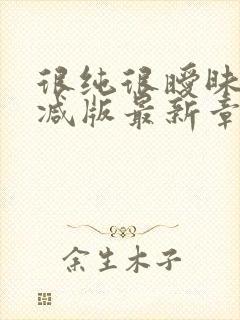 很纯很暧昧
减版最新章
余生木子